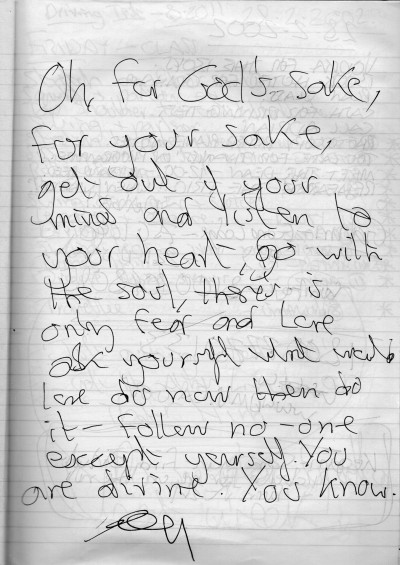 Oh, for God's sake,
for your sake,
get out of your
mind and listen to
your heart, go with
the soul, there is
only fear and love
ask yourself what would
love do now then do
it - follow no-one
except yourself. You
are divine. You know.